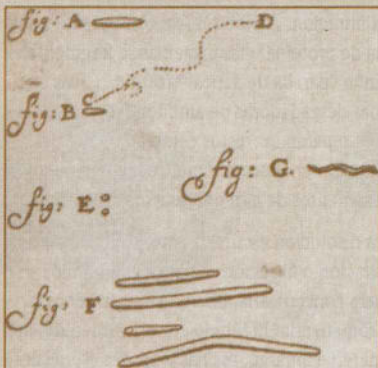 fig: A
D
fig: B C
fig: G.
fig: E
fig. F